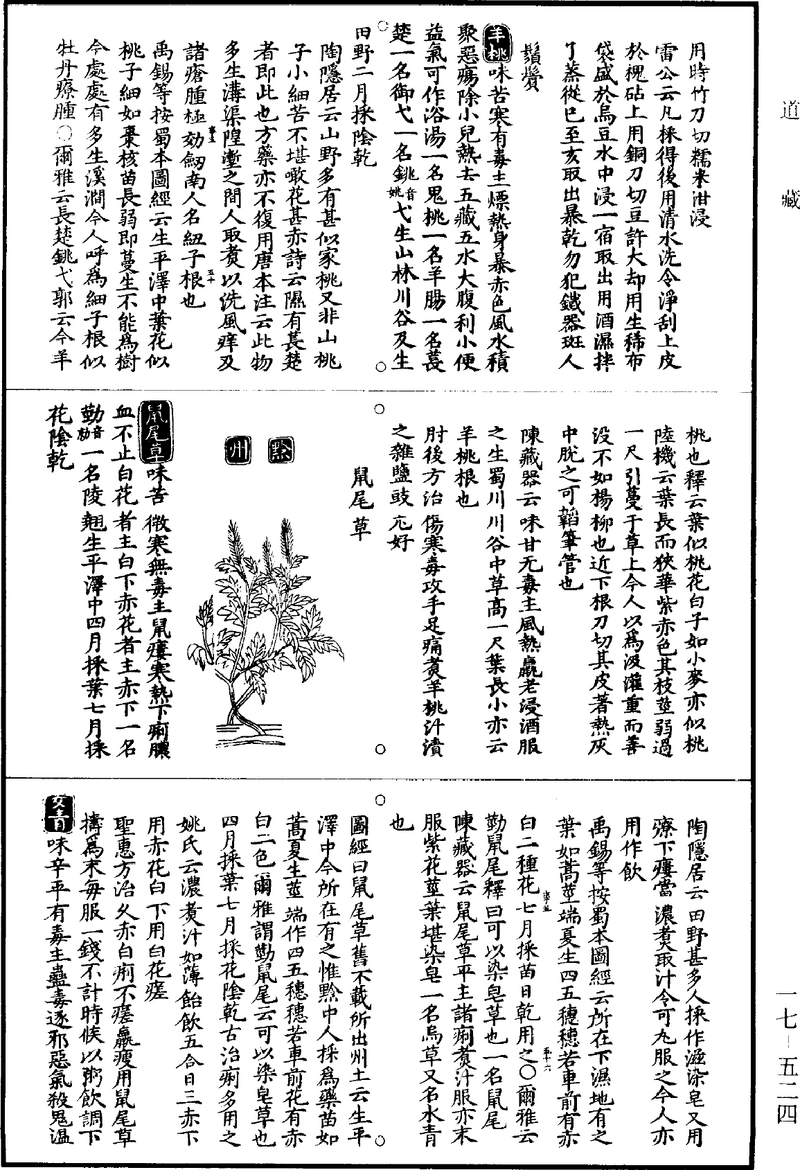 道藏
用時竹刀切糯米泔浸
雷公云凡採得後用清水洗令淨刮上皮
於槐砧上用銅刀切豆許大却用生稀布
袋盛於烏豆水中浸一宿取出用酒濕拌
了蒸從巳至亥取出暴乾勿犯鐵器斑人
鬚鬢
羊桃味苦寒有毒主熛熱身暴赤色風水積
聚惡瘍除小兒熱去五藏五水大腹利小便
益氣可作浴湯一名鬼桃一名羊腸一名萇
楚一名御弋一名銚音姚弋生山林川谷及生
田野二月採陰乾
陶隱居云山野多有甚似家桃又非山桃
子小細苦不堪噉花甚赤詩云隰有萇楚
者即此也方藥亦不復用唐本注云此物
多生溝渠隍壍之間人取煮以洗風痒及
諸瘡腫極効劒南人名細子根也
禹錫等按蜀本圖經云生平澤中葉花似
桃子細如棗核苗長弱即蔓生不能爲樹
今處處有多生溪澗今人呼爲細子根似
牡丹療腫○爾雅云長楚銚弋郭云今羊
桃也釋云葉似桃花白子如小麥亦似桃
陸機云葉長而狹華紫赤色其枝莖弱過
一尺引蔓于草上今人以爲汲灌重而善
没不如楊柳也近下根刀切其皮著熱灰
中脫之可韜筆管也
陳藏器云味甘无毒主風熱羸老浸酒服
之生蜀川川谷中草高一尺葉長小亦云
羊桃根也
肘後方治傷寒毒攻手足痛煮羊桃汁漬
之雜鹽豉尤好
鼠尾草
黔州
鼠尾草味苦微寒無毒主鼠瘻寒熱下痢膿
血不止白花者主白下赤花者主赤下一名
葝音勍一名陵翹生平澤中四月採葉七月採
花陰乾
陶隱居云田野甚多人採作滋染皂又用
療下瘻當濃煮取汁令可丸服之今人亦
用作飲
禹錫等按蜀本圖經云所在下濕地有之
葉如蒿莖端夏生四五穗穗若車前有赤
白二種花七月採苗日乾用之○爾雅云
葝鼠尾釋曰可以染皂草也一名鼠尾
陳藏器云鼠尾草平主諸痢煮汁服亦末
服紫花莖葉堪染皂一名烏草又名水青
也
圖經曰鼠尾草舊不載所出州土云生平
澤中今所在有之惟黔中人採爲藥苗如
蒿夏生莖端作四五穗穗若車前花有赤
白二色爾雅謂葝鼠尾云可以染皂草也
四月採葉七月採花陰乾古治痢多用之
姚氏云濃煮汁如薄飴飲五合日三赤下
用赤花白下用白花瘥
聖惠方治久赤白痢不瘥羸瘦用鼠尾草
擣爲末每服一錢不計時候以粥飲調下
女青味辛平有毒主蠱毒逐邪惡氣殺鬼溫
一七-五二四